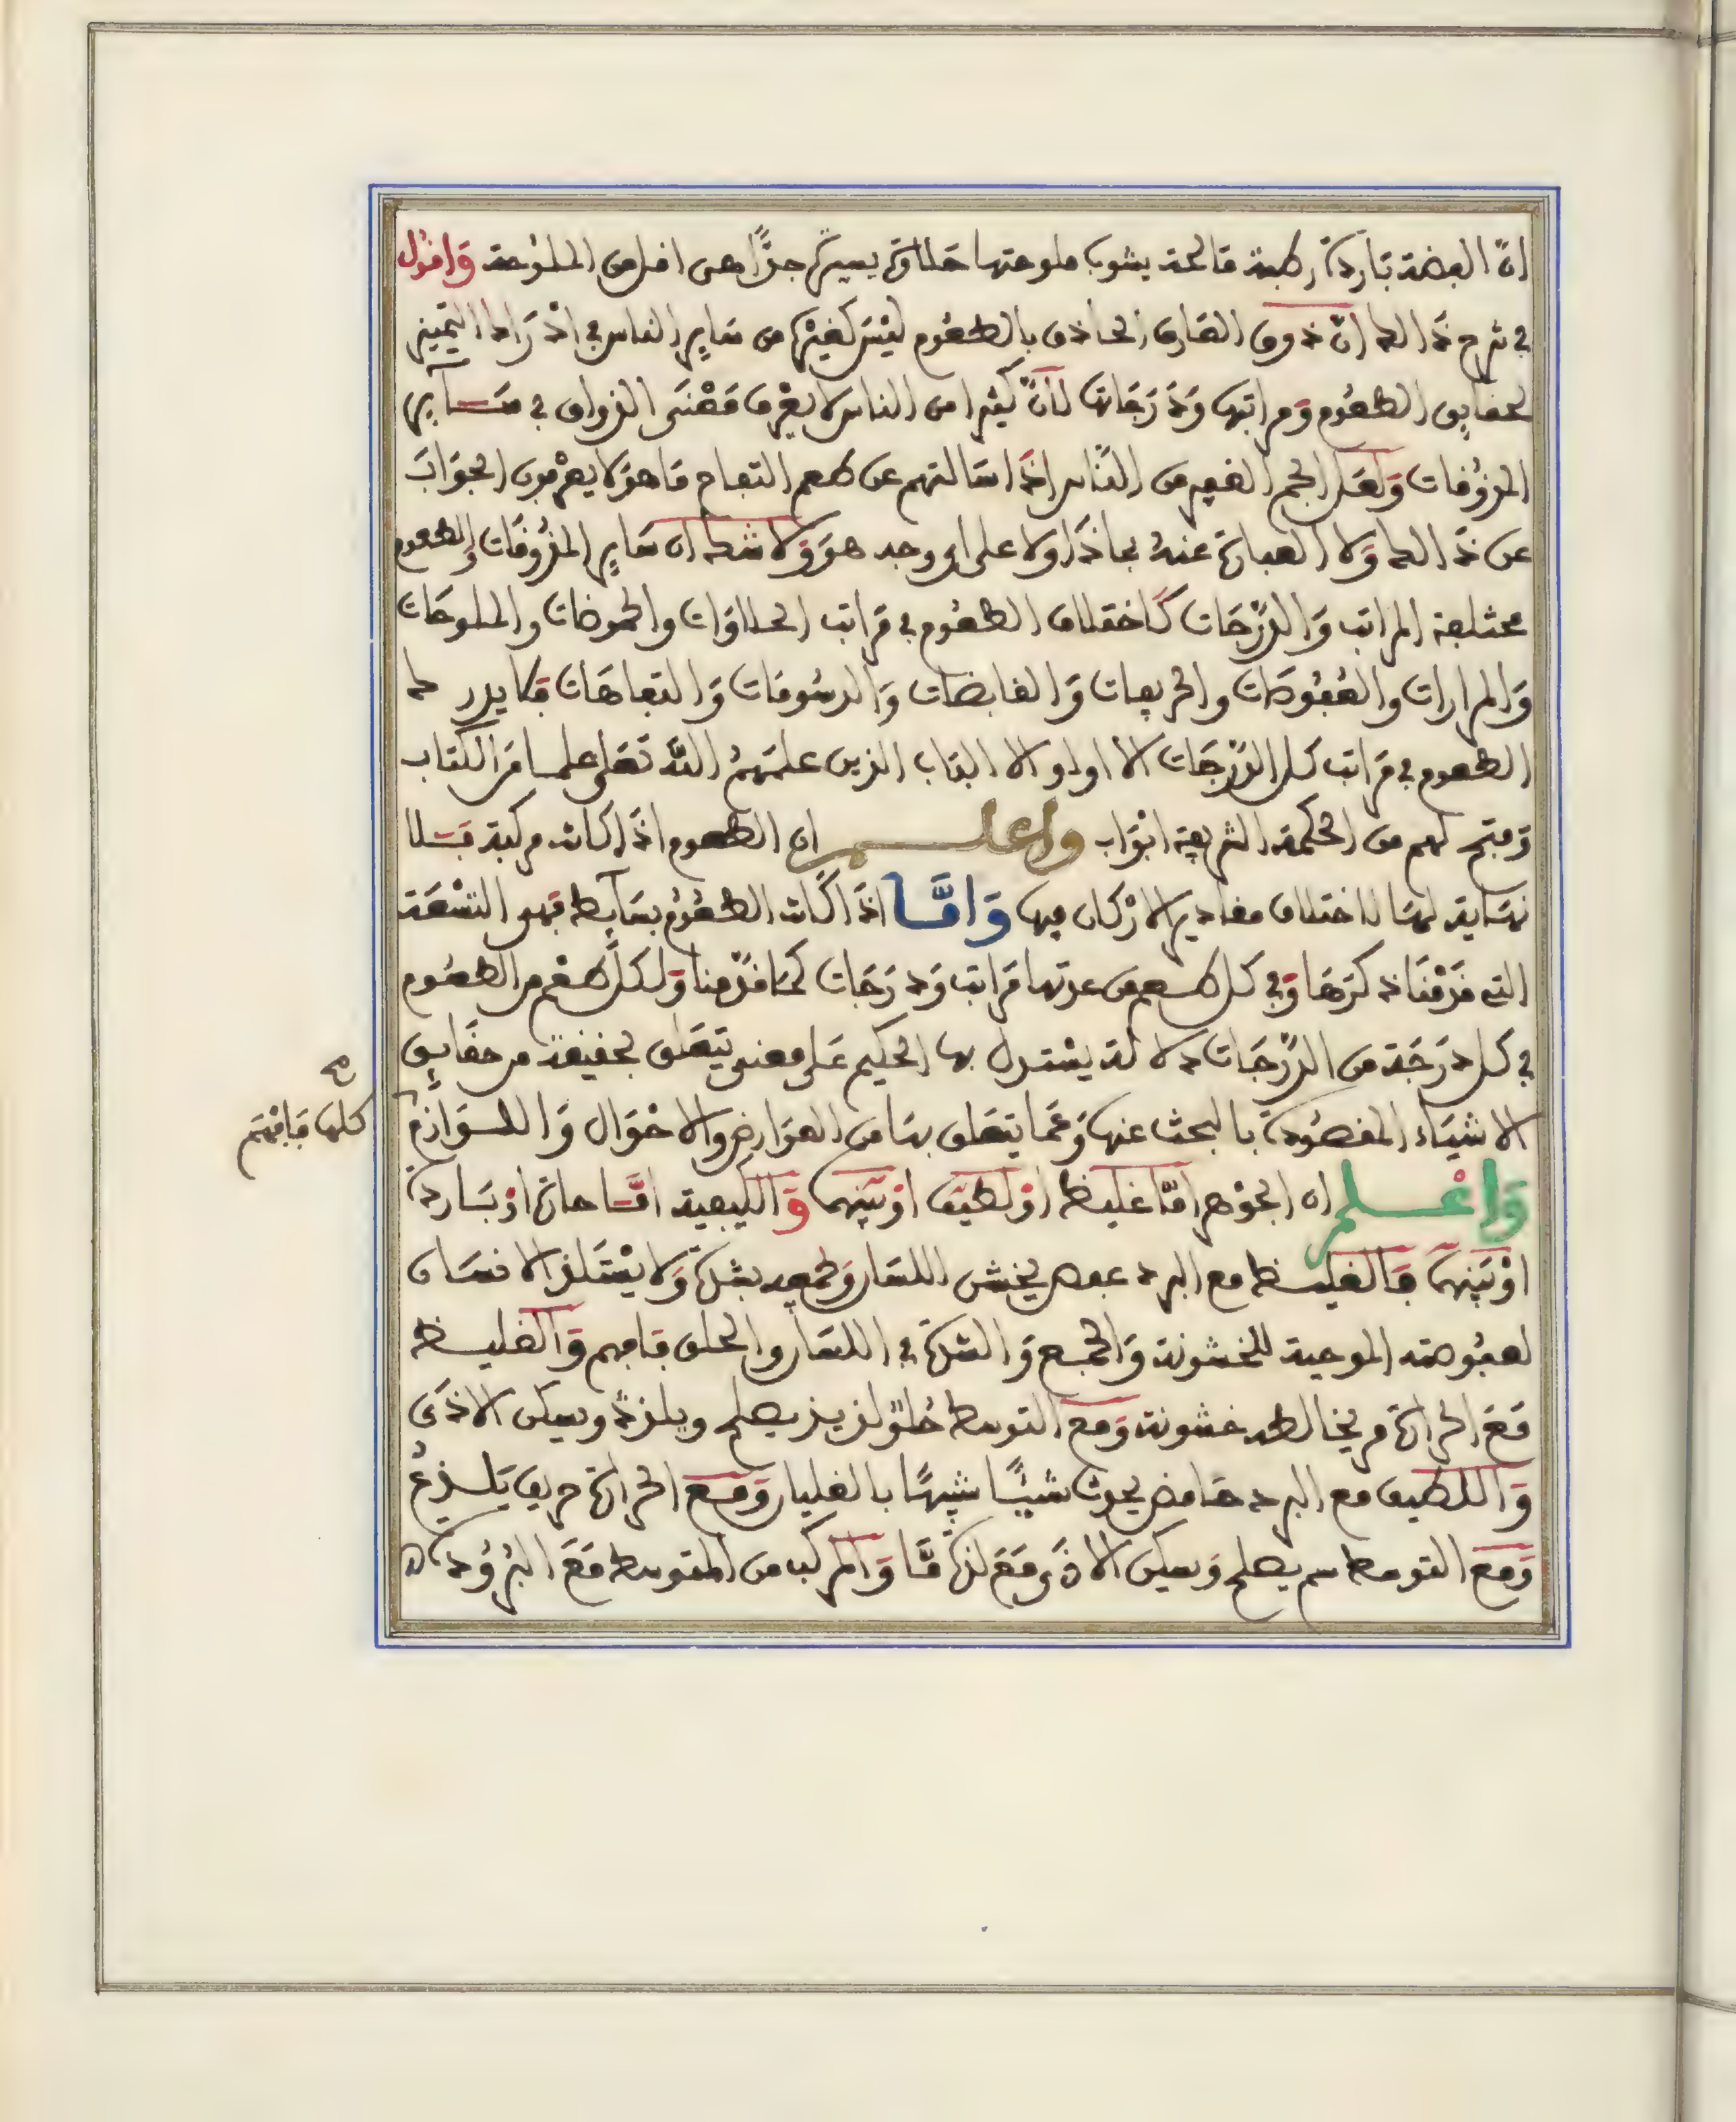 ان الفضة باردة رطبة مالحة يشوب ملوحتها حلاوة يسيرة جدًّا هى اقل من الملوحة وَاقول
في شرح ذالك انّ ذوق العَارف الحاذق بالطعُوم ليْسَ كغيْره من سَايرِ الناس في ادْرَاك التمييز
لحقايق الطعُوم وَمراتبها وَدَرَجَاتها لأنّ كثيرا من الناس لا يعْرف مَعْنَى الذواق في سَــآيرِ
المذوُقات وَلعَل الجم الغفير من النَّاس اذَا سَالتهم عن طعم التفاح مَا هوَ لا يعرْفون الجوَابَ
عن ذَالك وَلا العبارة عنهُ بماذَا ولا على اي وجه هوَ وَلا شك ان سَايرِ المذُوقَات وَالطعوم
مختلفة المراتب وَالدّرَجَات كَاختلاف الطعُوم في مَراتب الحلاوَات والحموضات والملوحَات
وَالمرارات والعُفُوصَات والحريفات وَالقابضات وَالدسُومَات وَالتفاهَات فلا يدرك
الطعوم في مَراتب كل الدّرَجَات الا اولوالالباب الذين علمَهُمُ اللَّه تعَلى علمــا مَن الكتاب
وَفتح لهم من الحكمة الشريفة ابْوَاب واعلـــم ان الطعوم اذَا كانت مركبة فــلا
نهَاية لهَا لاختلاف مقادير الارْكان فيها وَامَّــا اذَا كَانت الطعُوُم بسَآيط فهى التسْعَة
التي قَدّمْنَا ذكرَهَا وَفي كل طــعم من عدتها مَراتب وَدَرَجَات كمَا قدّمنا وَلكل طعْم من الطعُوم
في كل درَجَة من الدّرَجَات دلالة يسْتدل بها الحكيم عَلى معنى يتعَلق بحقيقة من حقَايق
الاشيَاء المقصُودة بالبحث عنها وَعَما يتعَلق بهَا من العوَارض والاحْوَال وَاللــوَازم
كلها فَافهَم
صح
وَاعْــلم ان الجوْهر امَّا غليظ اوْ لطيف اوْ بَينهما وَالكيفية امَّــا حارة اوْ بَــاردة
اوْ بَينهما فَالغليــظ مع البرد عفص يخشن اللسَان وَيجمعه بشدة وَلا يسْتَلذ الانسَان
لعفُوصته الموجبة للخشونة وَالجمــع وَالشدة في اللسَان والحلق فافهم وَالغليــظ
مَعَ الحرارة مر يخالطه خشونة وَمع التوسط حُلوٌ لذيذ يصلح ويلذذُ ويسكن الاذَى
وَاللطيف مع البرد حَامض يحدث شيـئًا شبيهًا بالغليان وَمــع الحرارة حريف يَلــذعُ
وَمعَ التوسط دسم يصلح وَيسكن الاذَى مَعَ لذة مَّا وَالمركب من المتوسط مَعَ البرُودة